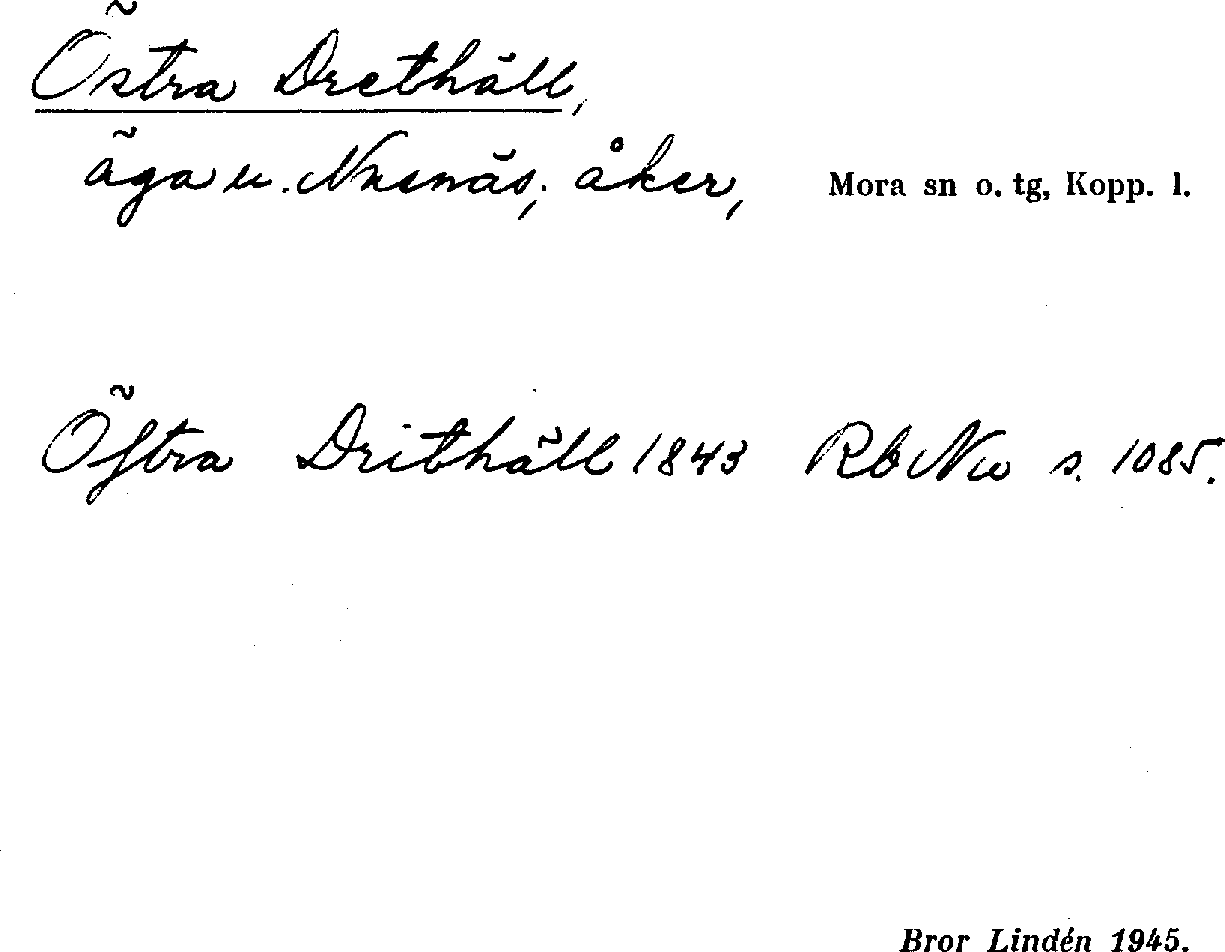 Östra Drethäll,
äga u. Nusnäs; åker, Mora sn o. tg, Kopp. l.
Öſtra Drithäll 1843 Rb Nu s. 1085.
Bror Lindén 1945.